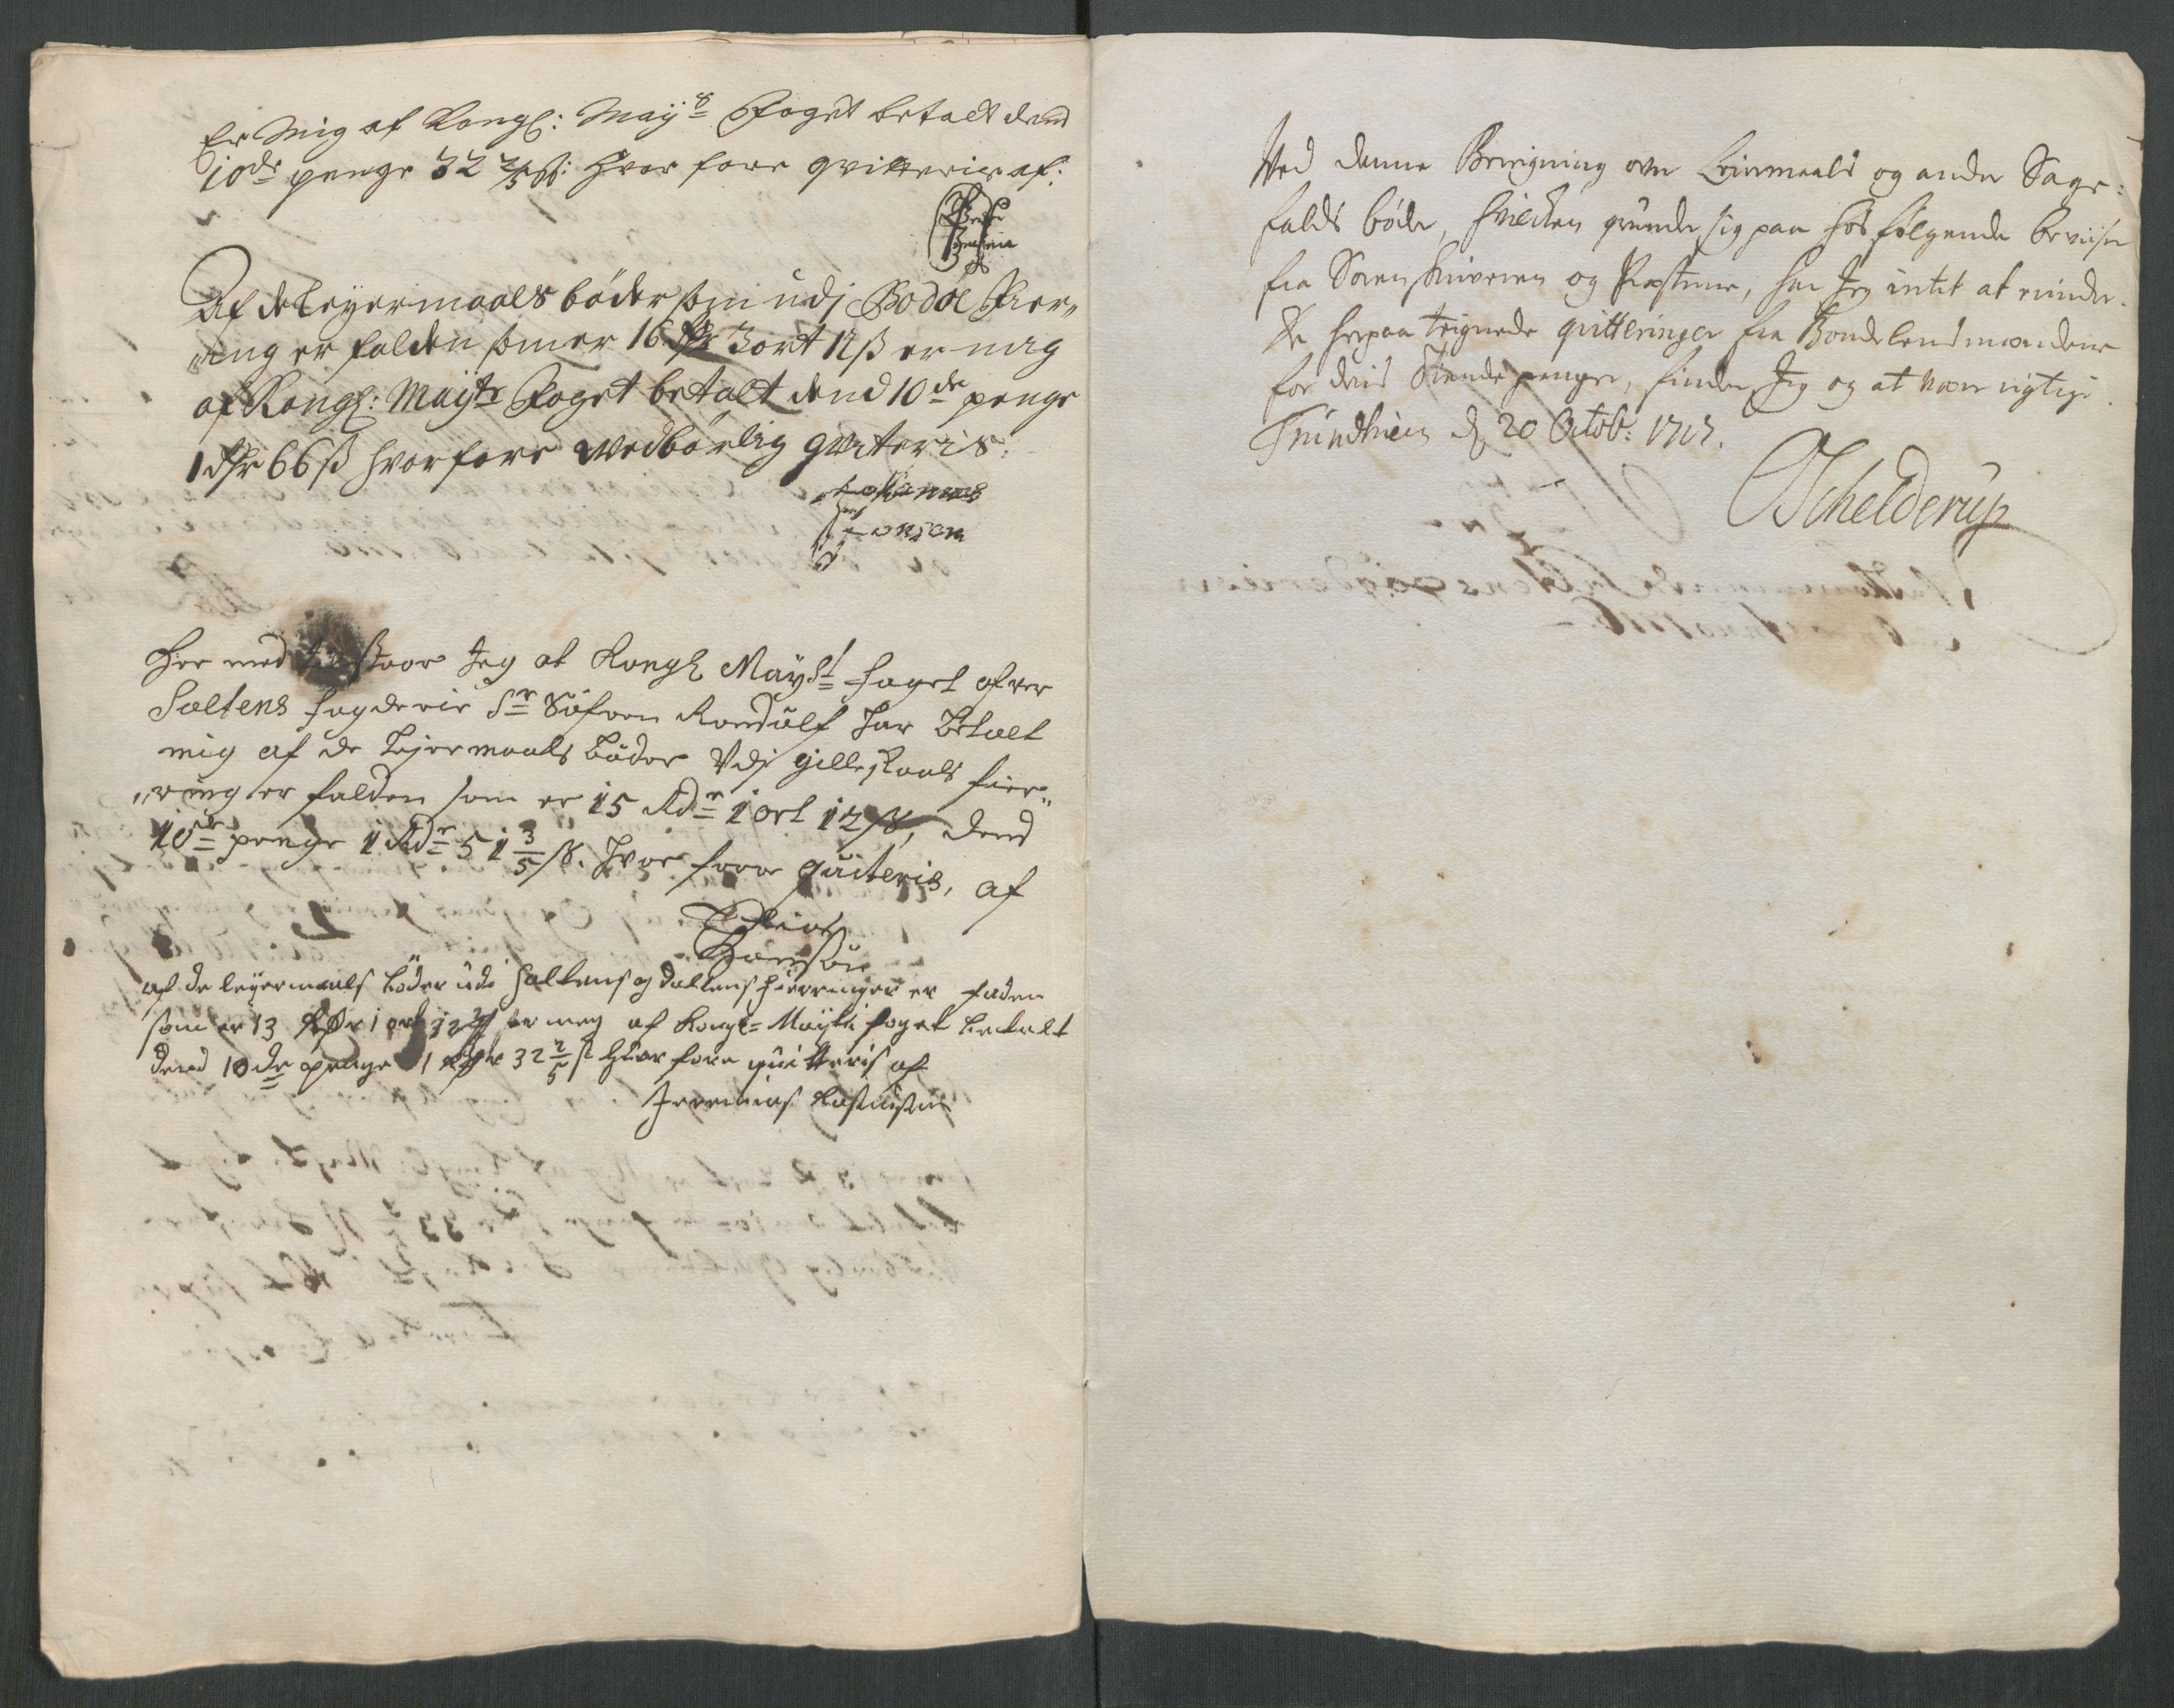 Er Mig af Kongl: May:s Foget betalt dend
10de penge 32 2/5 ß: hvor fore qvitteris af:
Af de leyermaals böder som udj Bodöe Fier„
„ing er falden som er 16 Rdr 3 ort 12 ß er mig
af Kongl: Mayts Foget betalt dend 10de penge
1 Rdr 66 ß hvorfore wedbörlig qviteris:
Johannes
Hans
Jonson
Her med tilstaar Jeg at Kongl Mayst foget ofver
Saltens fogderie Sr Söfren Rordulf har betalt
mig af de leyermaals böder Vdj Gilleskaals fier„
„ring er falden som er 15 Rdr 1 ort 12 ß, dend
10de penge 1 Rdr 51 3/5 ß. hvor foore quiteris, af
Peder
Hansön
af de leyermaals böder udi Saltens og fierringer er faden
som er 13 Rdr 1 ort 12 ß er meg af Kongl= Mayts foget betalt
dend 10de penge 1 Rdr 32 2/5 ß hvor fore quitteris af
Jeremias
Wed denne Beregning over Leiermaals og andre Sage-
falds böder, hvilcken grunder sig paa hosfølgende beviser
fra Sorenskriveren og Præsterne, har Jeg intet at erindre.
De herpaa teignede qvitteringer fra Bondelensmændene
for deris tiende penger, finder Jeg og at være rigtige.
Trundhiem d. 20 Octob: 1717.
Schelderup